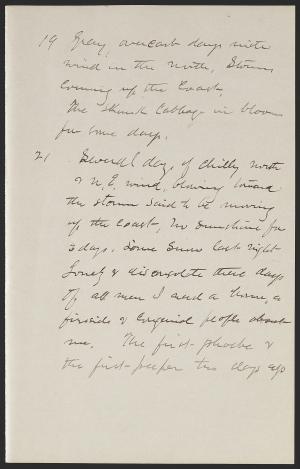 19 Grey, overcast days with
wind in the north, Storm
coming up the Coast,
The Skunk Cabbage in bloom
for some days.
21 Several days of chilly north
& N.E. wind, blowing toward
the storm said to be moving
up the Coast, No Sunshine for
3 days. Some Snow last night
Lonely & disconsolate these days
Of all men I need a home, a
fireside & congenial people about
me. The first-phoebe &
the first-peeper two days ago